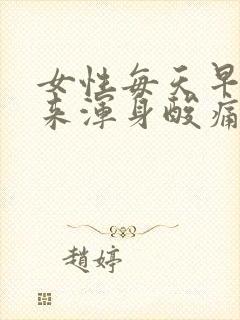 女性每天早
来渾身酸痛
趙婷